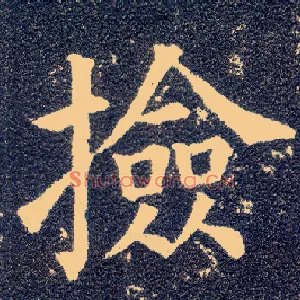 撿
Shufawang.Cn